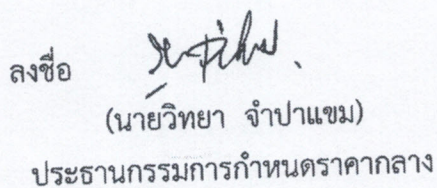 ลงชื่อ
(นายวิทยา จำปาแขม)
ประธานกรรมการกำหนดราคากลาง